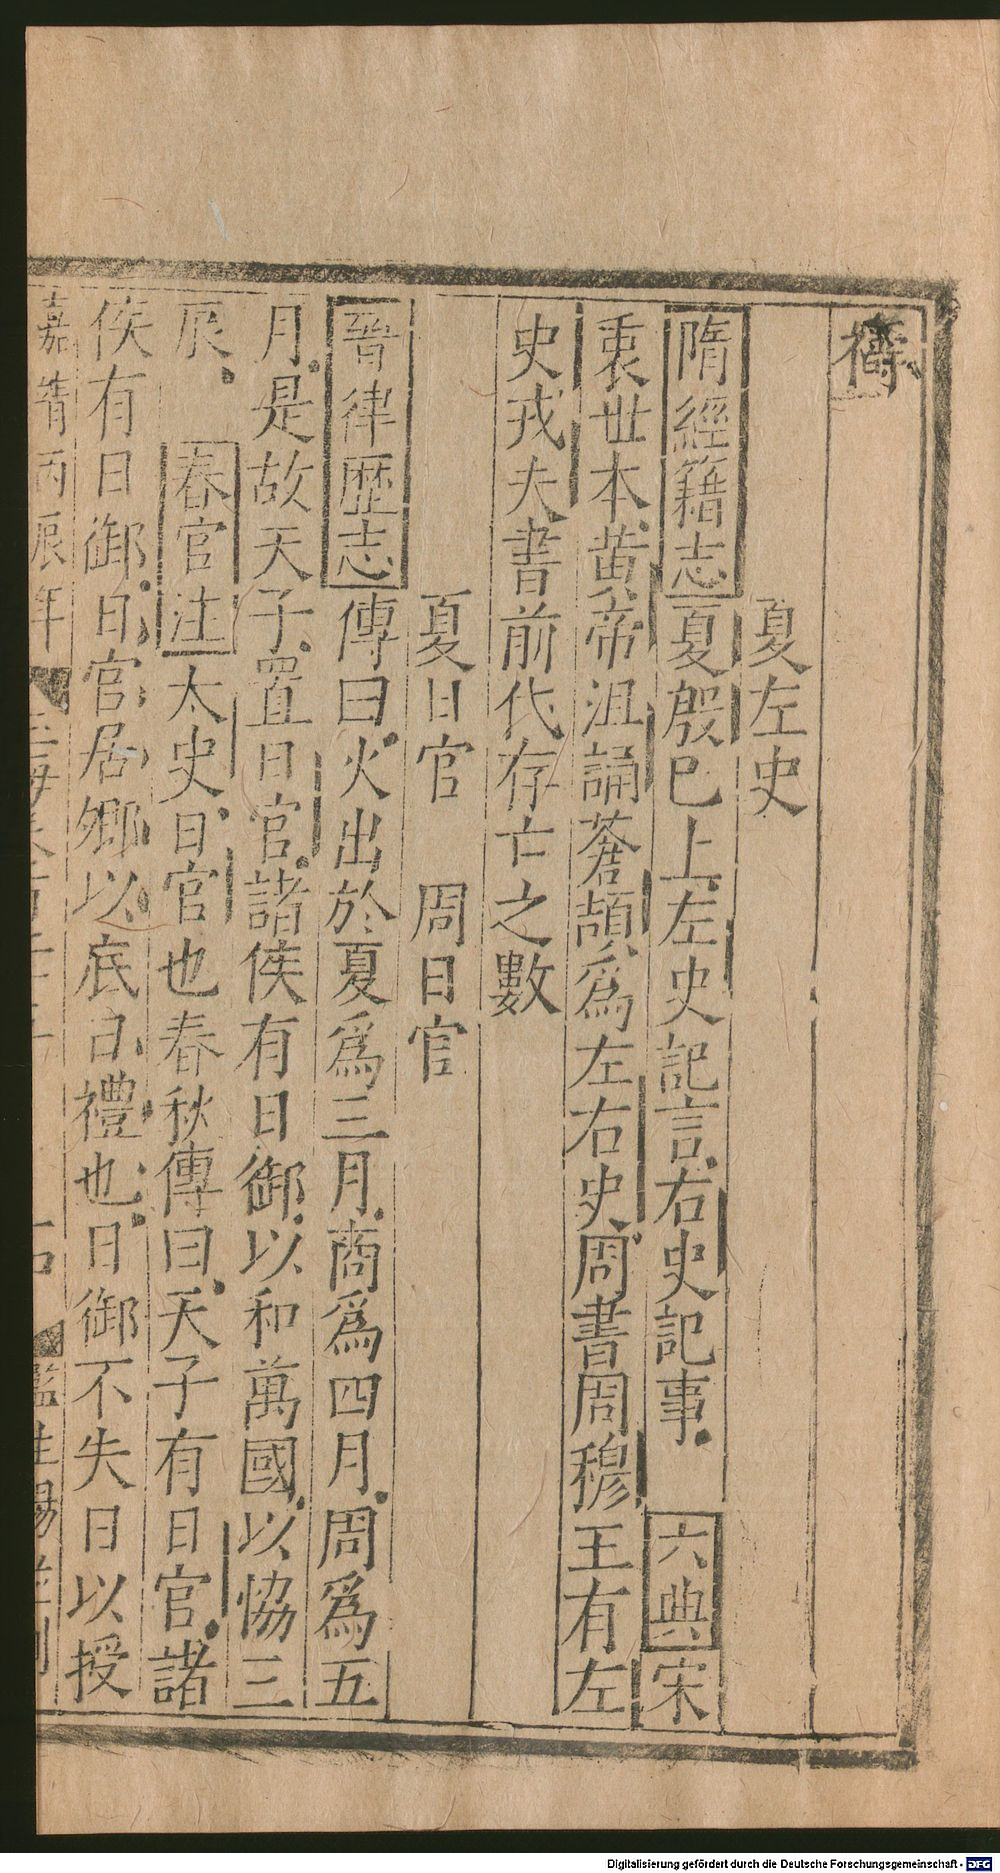 檮
夏左史
隋經籍志夏殷已上左史記言右史記事 六典宋
衷世本黃帝沮誦蒼頡爲左右史周書周穆王有左
史戎夫書前代存亡之數
夏日官 周日官
晉律歷志傳曰火出於夏爲三月商爲四月周爲五
月是故天子置日官諸侯有日御以和萬國以恊三
辰 春官注太史日官也春秋傳曰天子有日官諸
侯有日御日官居卿以底日禮也日御不失日以授
嘉靖丙辰年
Digitalisierung gefördert durch die Deutsche Forschungsgemeinschaft - DFG